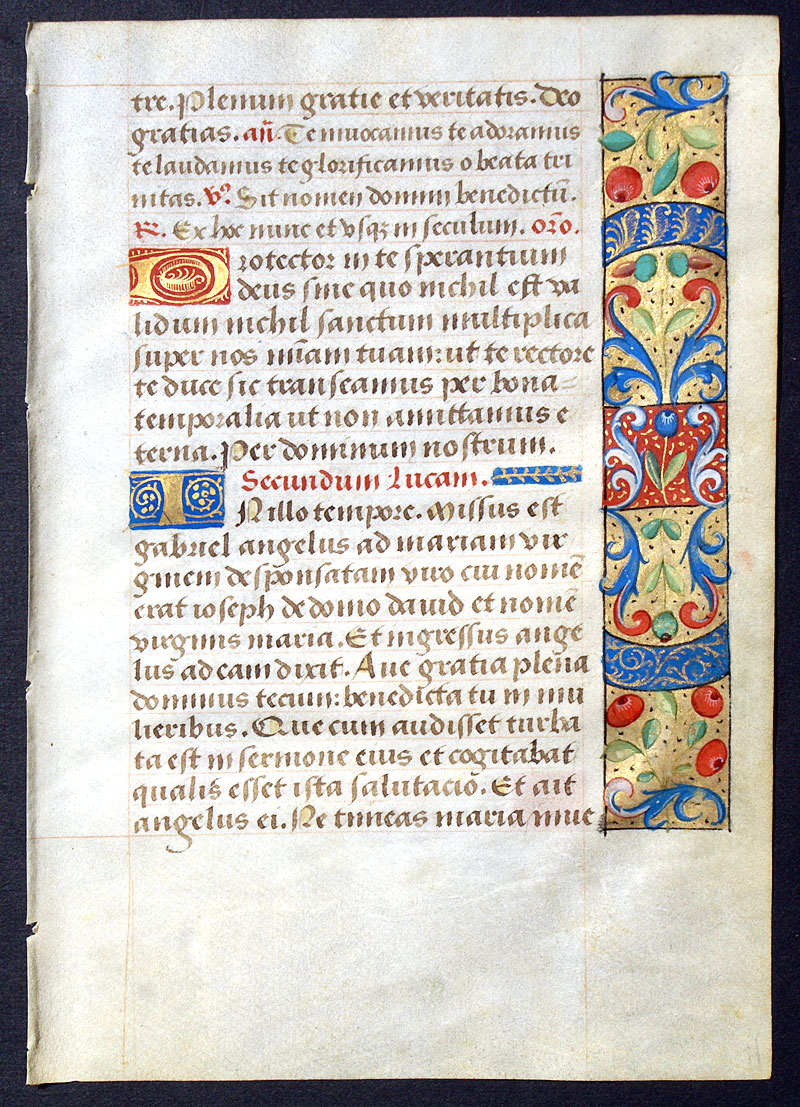 tre. Plenum gratie et veritatis. Deo
gratias. añ. Te inuocamus te adoramus
te laudamus te glorificamus o beata tri
nitas. ꝟ. Sit nomen domini benedictū.
℞. Ex hoc nunc et vsqꝫ in seculum. oro.
Protector in te sperantium
deus sine quo nichil est va
lidum nichil sanctum multiplica
super nos miam tuam: ut te rectore
te duce sic transeamus per bona
temporalia ut non amittamus e
terna. Per dominum nostrum.
Secundum Lucam.
IN illo tempore. Missus est
gabriel angelus ad mariam vir
ginem desponsatam viro cui nomē
erat ioseph de domo dauid et nomē
virginis maria. Et ingressus ange
lus ad eam dixit. Aue gratia plena
dominus tecum: benedicta tu in mu
lieribus. Que cum audisset turba
ta est in sermone eius et cogitabat
qualis esset ista salutacio. Et ait
angelus ei. Ne timeas maria inue